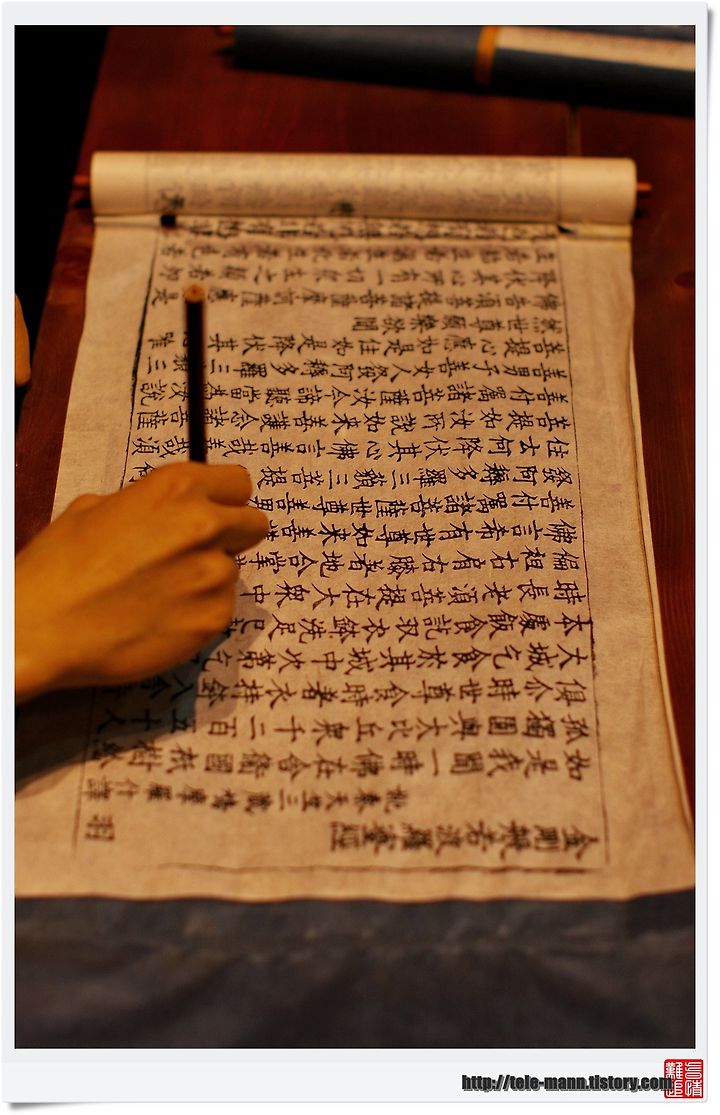 金剛般若波羅蜜經
姚秦天竺三藏鳩摩羅什譯
如是我聞一時佛在舍衛國祇樹給
孤獨園與大比丘衆千二百五十人
俱爾時世尊食時著衣持鉢入舍
大城乞食於其城中次第乞
本處飯食訖收衣鉢洗足已敷
時長老須菩提在大衆中
偏袒右肩右膝著地合掌
佛言希有世尊如來善
善付囑諸菩薩世尊善男
發阿耨多羅三藐三菩提
住云何降伏其心佛言善哉善哉須
菩提如汝所說如來善護念諸菩薩
善付囑諸菩薩汝今諦聽當爲汝說
善男子善女人發阿耨多羅三藐三
菩提心應如是住如是降伏其 唯
然世尊願樂欲聞
佛告須菩提諸菩薩摩訶薩應 是
降伏其心所有一切衆生之類若卵
生若胎生若濕生若化生若
http://tele-mann.tistory.com